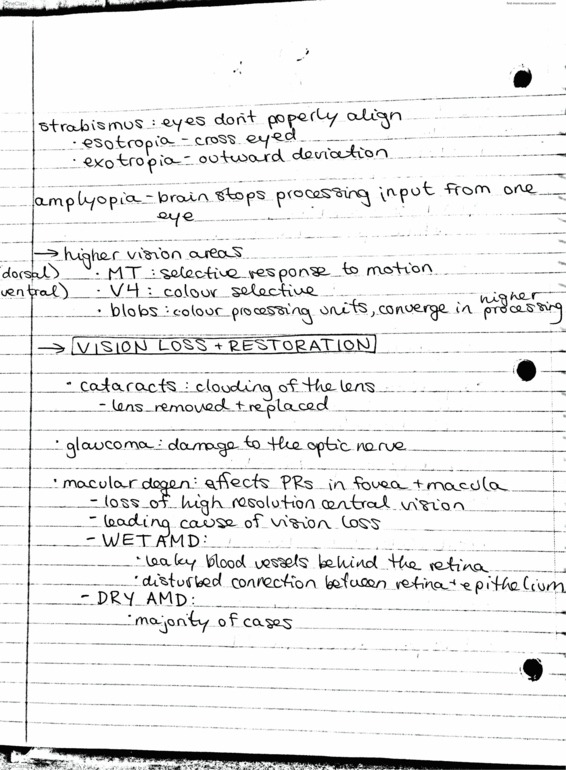 strabismus : eyes don't poperly align
· esotropia - cross eyed
· exotropia - outward deviation
amplyopia - brain stops processing input from one
eye
→ higher vision areas
dorsal) · MT : selective response to motion
ventral) · V4 : colour selective
· blobs : colour processing units, converge in higher processing
→ VISION LOSS + RESTORATION
· cataracts : clouding of the lens
- lens removed + replaced
· glaucoma : damage to the optic nerve
· macular degen : affects PRs in fovea + macula
- loss of high resolution central vision
- leading cause of vision loss
- WET AMD :
· leaky blood vessels behind the retina
· disturbed connection between retina + epithelium
- DRY AMD :
· majority of cases